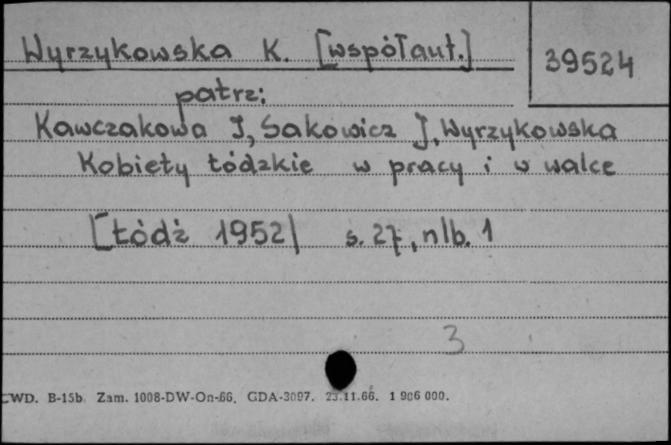 Wyrzykowska K. [współaut.]
39524
patrz:
Kawczakowa J, Sakowicz J, Wyrzykowska
Kobiety łódzkie w pracy i w walce
[Łódź 1952] s. 27, nlb. 1
3
CWD. B-15b. Zam. 1008-DW-On-66. GDA-3097. 23.11.66. 1 986 000.